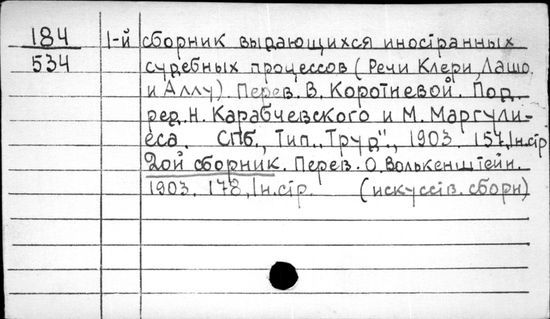 184 1-й сборник выдающихся иностранных
534 судебных процессов (Речи Клери, Лашо
и Аллу). Перев. В. Коротневой. Под
ред. Н. Карабчевского и М. Маргули-
еса. СПб., Тип. "Труд", 1903. 157, 1н.стр
2ой сборник. Перев. О. Волькенштейн.
1903. 178, 1н.стр. (искусств. сборн)